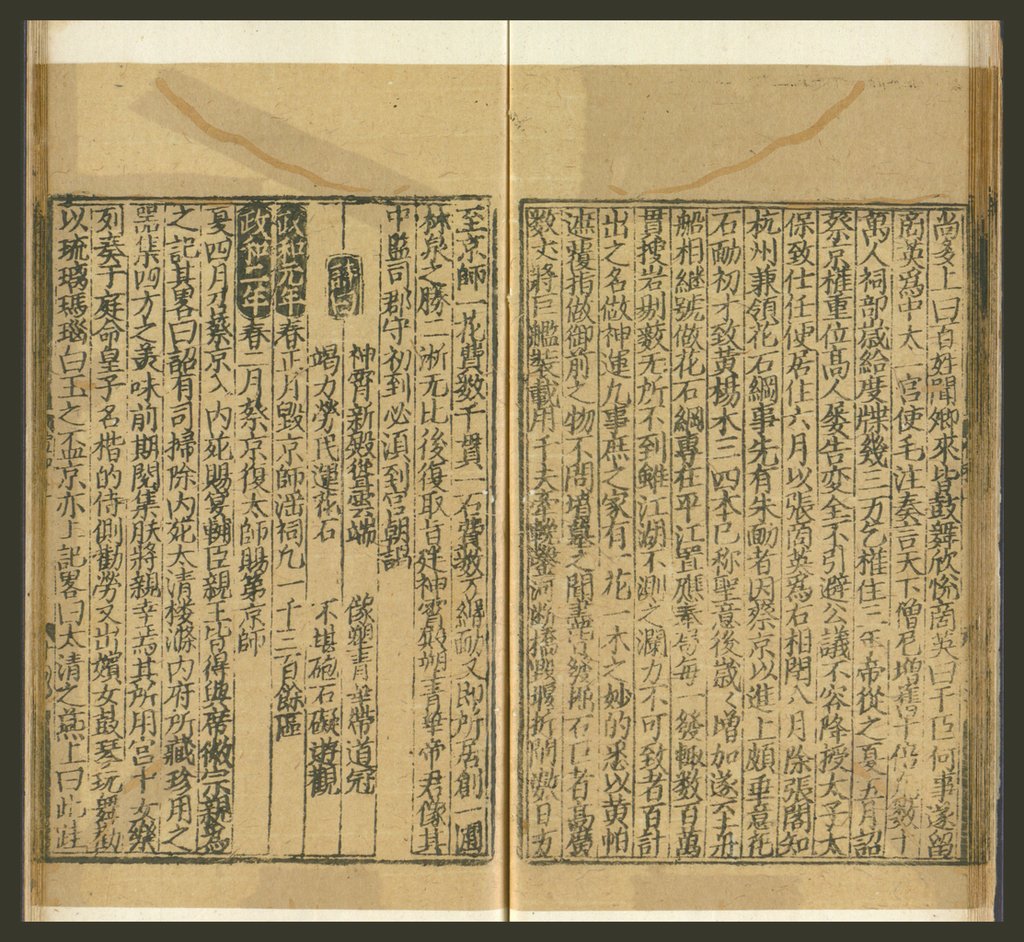 尚多上曰百姓聞卿來皆鼓舞欣悅商英曰于臣何事遂留
商英爲中太一宮使毛注奏言天下僧尼增舊
萬人祠部歲給度牒幾三万乞權住三年帝從之夏五月詔
蔡京權重位髙人屡告变全不引避公議不容降授太子太
保致仕任便居住六月以張商英爲右相閏八月除張閣知
杭州兼領花石綱事先有朱勔者因蔡京以進上頗垂意花
石勔初才致黃楊木三四本已称聖意後歲々增加遂至舟
船相継號做花石綱專在平江置應奉局每一發輒數百萬
貫搜岩剔薮无所不到雖江湖不測之瀾力不可致者百計
出之名做神運凡事庶之家有一花一木之妙的悉以黄帕
遮覆指做御前之物不問墳墓之間盡皆發掘石巨者髙廣
數丈將巨艦裝載用千夫牽挽鑿河断橋毀堰拆閘數日方
至京師一花費數千貫一石費數万緡勔又即所居創一圃
林泉之勝二浙无比後復取旨建神霄殿塑青華帝君像其
中監司郡守初到必須到宮朝謁
詩曰
神霄新殿聳雲端 像塑青華帶道冠
竭力勞民運花石 不堪砲石礙遊觀
政和元年春正月毀京師淫祠凡一千三百餘區
政和二年春二月蔡京復太師賜第京師
夏四月召蔡京入内苑賜宴輔臣親王皆得與席徽宗親爲
之記其畧曰詔有司掃除内苑太清楼滌内府所藏珍用之
器集四方之美味前期閱集朕將親幸焉其所用宮中女樂
列奏于庭命皇子名楷的侍側勸勞又出嬪女鼓琴玩舞勸
以琉璃瑪瑙白玉之盃京亦上記畧曰太清之燕上曰此跬